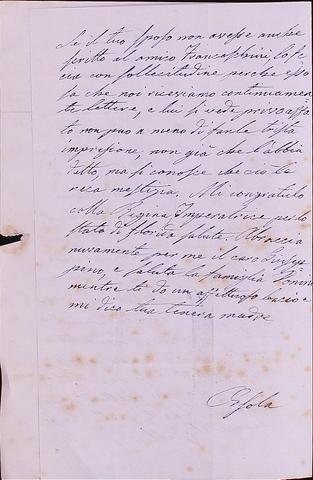 Se il tuo sposo non avesse anche
scritto al amico Franceschini lo fac
cia con sollecitudine perche esso
sa che noi riceviamo continuamen
te lettere, e lui si vede privo affa
to non puo a meno di farle trista
impressione, non già che l'abbia
detto, ma si conosce che ciò le
reca mestizia. Mi congratulo
colla Regina Imperatrice per lo
stato di florida salute. Abbraccia
nuovamente per me il caro Giusep
peno, e saluta la famiglia
mentre ti do un affettuoso bacio e
mi dico tua tenera madre
Orsola